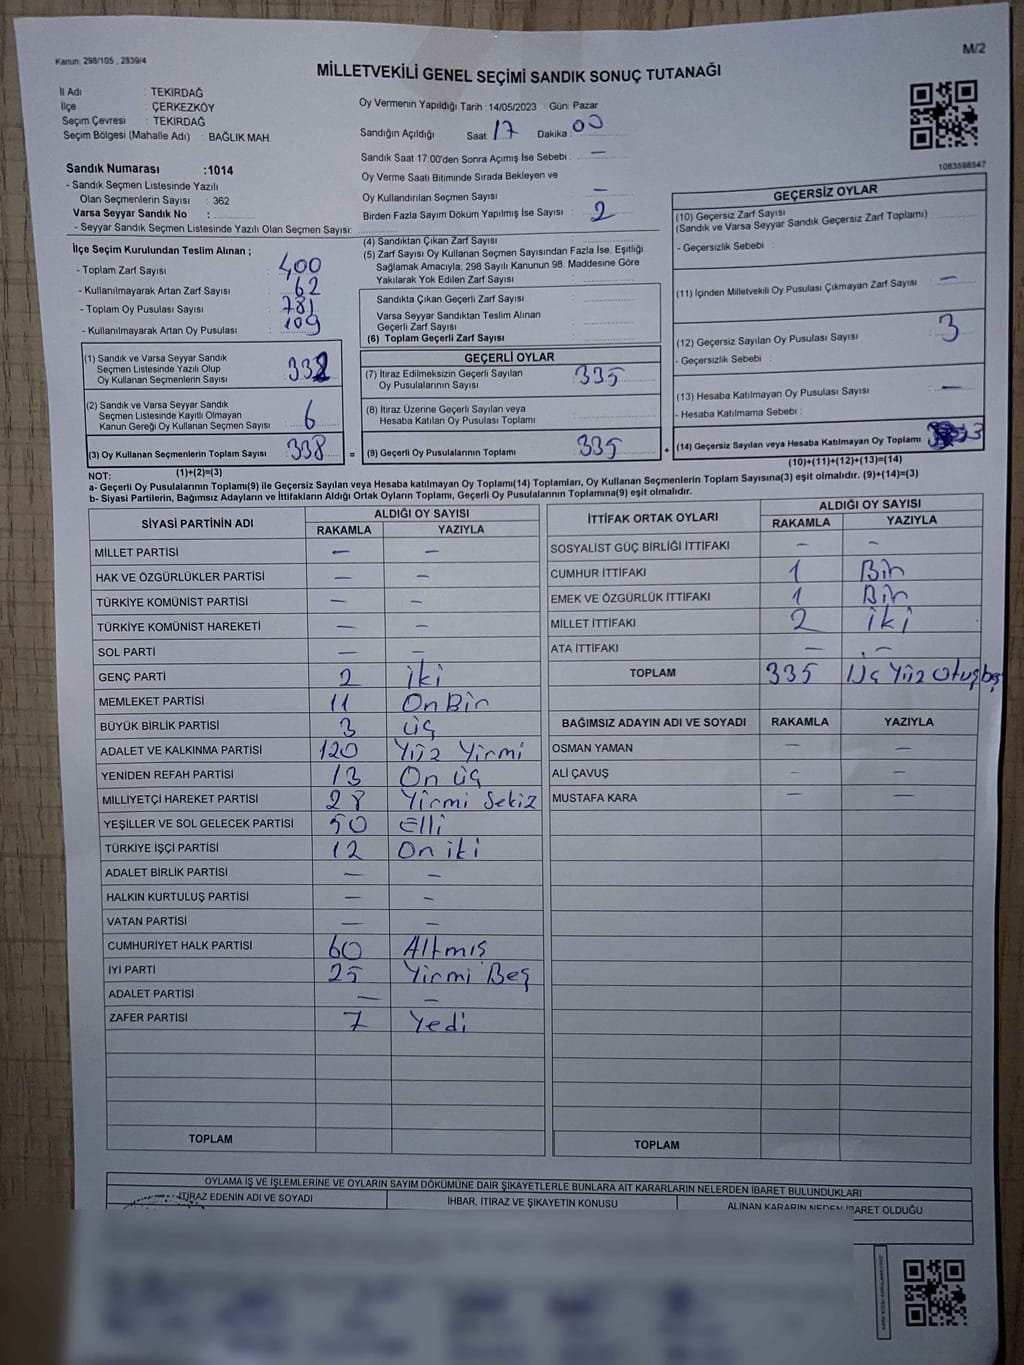 Kanun: 298/105 , 2839/4
M/2
MİLLETVEKİLİ GENEL SEÇİMİ SANDIK SONUÇ TUTANAĞI
İl Adı : TEKİRDAĞ
İlçe : ÇERKEZKÖY
Seçim Çevresi : TEKİRDAĞ
Seçim Bölgesi (Mahalle Adı) : BAĞLIK MAH.
Oy Vermenin Yapıldığı Tarih :14/05/2023 Gün: Pazar
Sandığın Açıldığı Saat: 17 Dakika : 00
Sandık Saat 17:00'den Sonra Açımış İse Sebebi : —
Oy Verme Saati Bitiminde Sırada Bekleyen ve
Oy Kullandırılan Seçmen Sayısı : —
Birden Fazla Sayım Döküm Yapılmış İse Sayısı : 2
1083598547
Sandık Numarası :1014
- Sandık Seçmen Listesinde Yazılı
Olan Seçmenlerin Sayısı : 362
Varsa Seyyar Sandık No :
- Seyyar Sandık Seçmen Listesinde Yazılı Olan Seçmen Sayısı:
İlçe Seçim Kurulundan Teslim Alınan ;
- Toplam Zarf Sayısı : 400
- Kullanılmayarak Artan Zarf Sayısı : 62
- Toplam Oy Pusulası Sayısı : 781
- Kullanılmayarak Artan Oy Pusulası : 109
(1) Sandık ve Varsa Seyyar Sandık
Seçmen Listesinde Yazılı Olup
Oy Kullanan Seçmenlerin Sayısı : 332
(2) Sandık ve Varsa Seyyar Sandık
Seçmen Listesinde Kayıtlı Olmayan
Kanun Gereği Oy Kullanan Seçmen Sayısı : 6
(3) Oy Kullanan Seçmenlerin Toplam Sayısı : 338
(1)+(2)=(3)
(4) Sandıktan Çıkan Zarf Sayısı :
(5) Zarf Sayısı Oy Kullanan Seçmen Sayısından Fazla İse, Eşitliği
Sağlamak Amacıyla; 298 Sayılı Kanunun 98. Maddesine Göre
Yakılarak Yok Edilen Zarf Sayısı :
Sandıkta Çıkan Geçerli Zarf Sayısı :
Varsa Seyyar Sandıktan Teslim Alınan
Geçerli Zarf Sayısı :
(6) Toplam Geçerli Zarf Sayısı :
GEÇERLİ OYLAR
(7) İtiraz Edilmeksizin Geçerli Sayılan
Oy Pusulalarının Sayısı : 335
(8) İtiraz Üzerine Geçerli Sayılan veya
Hesaba Katılan Oy Pusulası Toplamı :
= (9) Geçerli Oy Pusulalarının Toplamı : 335 +
GEÇERSİZ OYLAR
(10) Geçersiz Zarf Sayısı
(Sandık ve Varsa Seyyar Sandık Geçersiz Zarf Toplamı) :
- Geçersizlik Sebebi :
(11) İçinden Milletvekili Oy Pusulası Çıkmayan Zarf Sayısı : —
(12) Geçersiz Sayılan Oy Pusulası Sayısı : 3
- Geçersizlik Sebebi :
(13) Hesaba Katılmayan Oy Pusulası Sayısı : —
- Hesaba Katılmama Sebebi :
(14) Geçersiz Sayılan veya Hesaba Katılmayan Oy Toplamı : 3
(10)+(11)+(12)+(13)=(14)
NOT:
a- Geçerli Oy Pusulalarının Toplamı(9) ile Geçersiz Sayılan veya Hesaba katılmayan Oy Toplamı(14) Toplamları, Oy Kullanan Seçmenlerin Toplam Sayısına(3) eşit olmalıdır. (9)+(14)=(3)
b- Siyasi Partilerin, Bağımsız Adayların ve İttifakların Aldığı Ortak Oyların Toplamı, Geçerli Oy Pusulalarının Toplamına(9) eşit olmalıdır.
SİYASİ PARTİNİN ADI ALDIĞI OY SAYISI
RAKAMLA YAZIYLA
MİLLET PARTİSİ — —
HAK VE ÖZGÜRLÜKLER PARTİSİ — —
TÜRKİYE KOMÜNİST PARTİSİ — —
TÜRKİYE KOMÜNİST HAREKETİ — —
SOL PARTİ — —
GENÇ PARTİ 2 iki
MEMLEKET PARTİSİ 11 On Bir
BÜYÜK BİRLİK PARTİSİ 3 üç
ADALET VE KALKINMA PARTİSİ 120 Yüz Yirmi
YENİDEN REFAH PARTİSİ 13 On üç
MİLLİYETÇİ HAREKET PARTİSİ 28 Yirmi Sekiz
YEŞİLLER VE SOL GELECEK PARTİSİ 50 Elli
TÜRKİYE İŞÇİ PARTİSİ 12 On iki
ADALET BİRLİK PARTİSİ — —
HALKIN KURTULUŞ PARTİSİ — —
VATAN PARTİSİ — —
CUMHURİYET HALK PARTİSİ 60 Altmış
İYİ PARTİ 25 Yirmi Beş
ADALET PARTİSİ — —
ZAFER PARTİSİ 7 Yedi
TOPLAM
İTTİFAK ORTAK OYLARI ALDIĞI OY SAYISI
RAKAMLA YAZIYLA
SOSYALİST GÜÇ BİRLİĞİ İTTİFAKI — —
CUMHUR İTTİFAKI 1 Bir
EMEK VE ÖZGÜRLÜK İTTİFAKI 1 Bir
MİLLET İTTİFAKI 2 iki
ATA İTTİFAKI — —
TOPLAM 335 Üç Yüz Otuz beş
BAĞIMSIZ ADAYIN ADI VE SOYADI RAKAMLA YAZIYLA
OSMAN YAMAN — —
ALİ ÇAVUŞ — —
MUSTAFA KARA — —
TOPLAM
OYLAMA İŞ VE İŞLEMLERİNE VE OYLARIN SAYIM DÖKÜMÜNE DAİR ŞİKAYETLERLE BUNLARA AİT KARARLARIN NELERDEN İBARET BULUNDUKLARI
İTİRAZ EDENİN ADI VE SOYADI İHBAR, İTİRAZ VE ŞİKAYETİN KONUSU ALINAN KARARIN NEDEN İBARET OLDUĞU